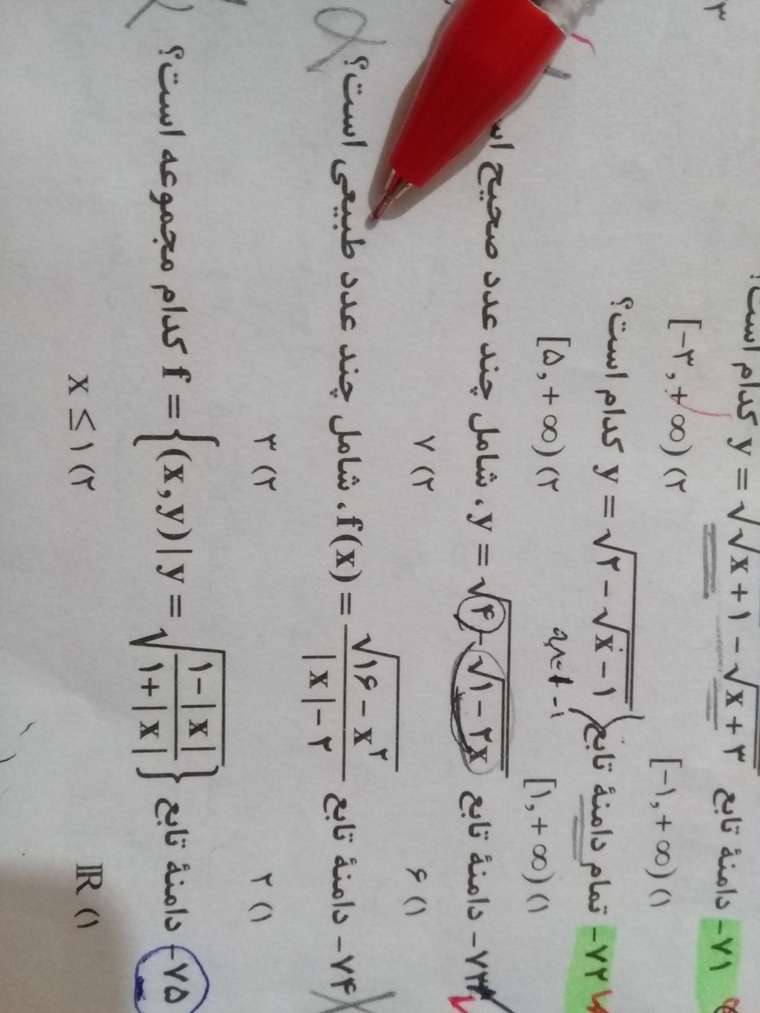 ۳
۷۱- دامنهٔ تابع y = √(√x+1 − √x+۳) کدام است؟
۱) [−۱, +∞) ۲) [−۳, +∞)
۷۲- تمام دامنهٔ تابع y = √(۲ − √(x−۱)) کدام است؟
۱) [۱, +∞) ۲) [۵, +∞)
۷۳- دامنهٔ تابع y = √(۴ − √(۱−۲x))، شامل چند عدد صحیح
۱) ۶ ۲) ۷
۷۴- دامنهٔ تابع f(x) = √(۱۶ − x^۲) / (|x| − ۳)، شامل چند عدد طبیعی است؟
۱) ۲ ۲) ۳
۷۵- دامنهٔ تابع f = {(x,y) | y = √((۱−|x|)/(۱+|x|))} کدام مجموعه است؟
۱) ℝ ۲) x ≤ ۱